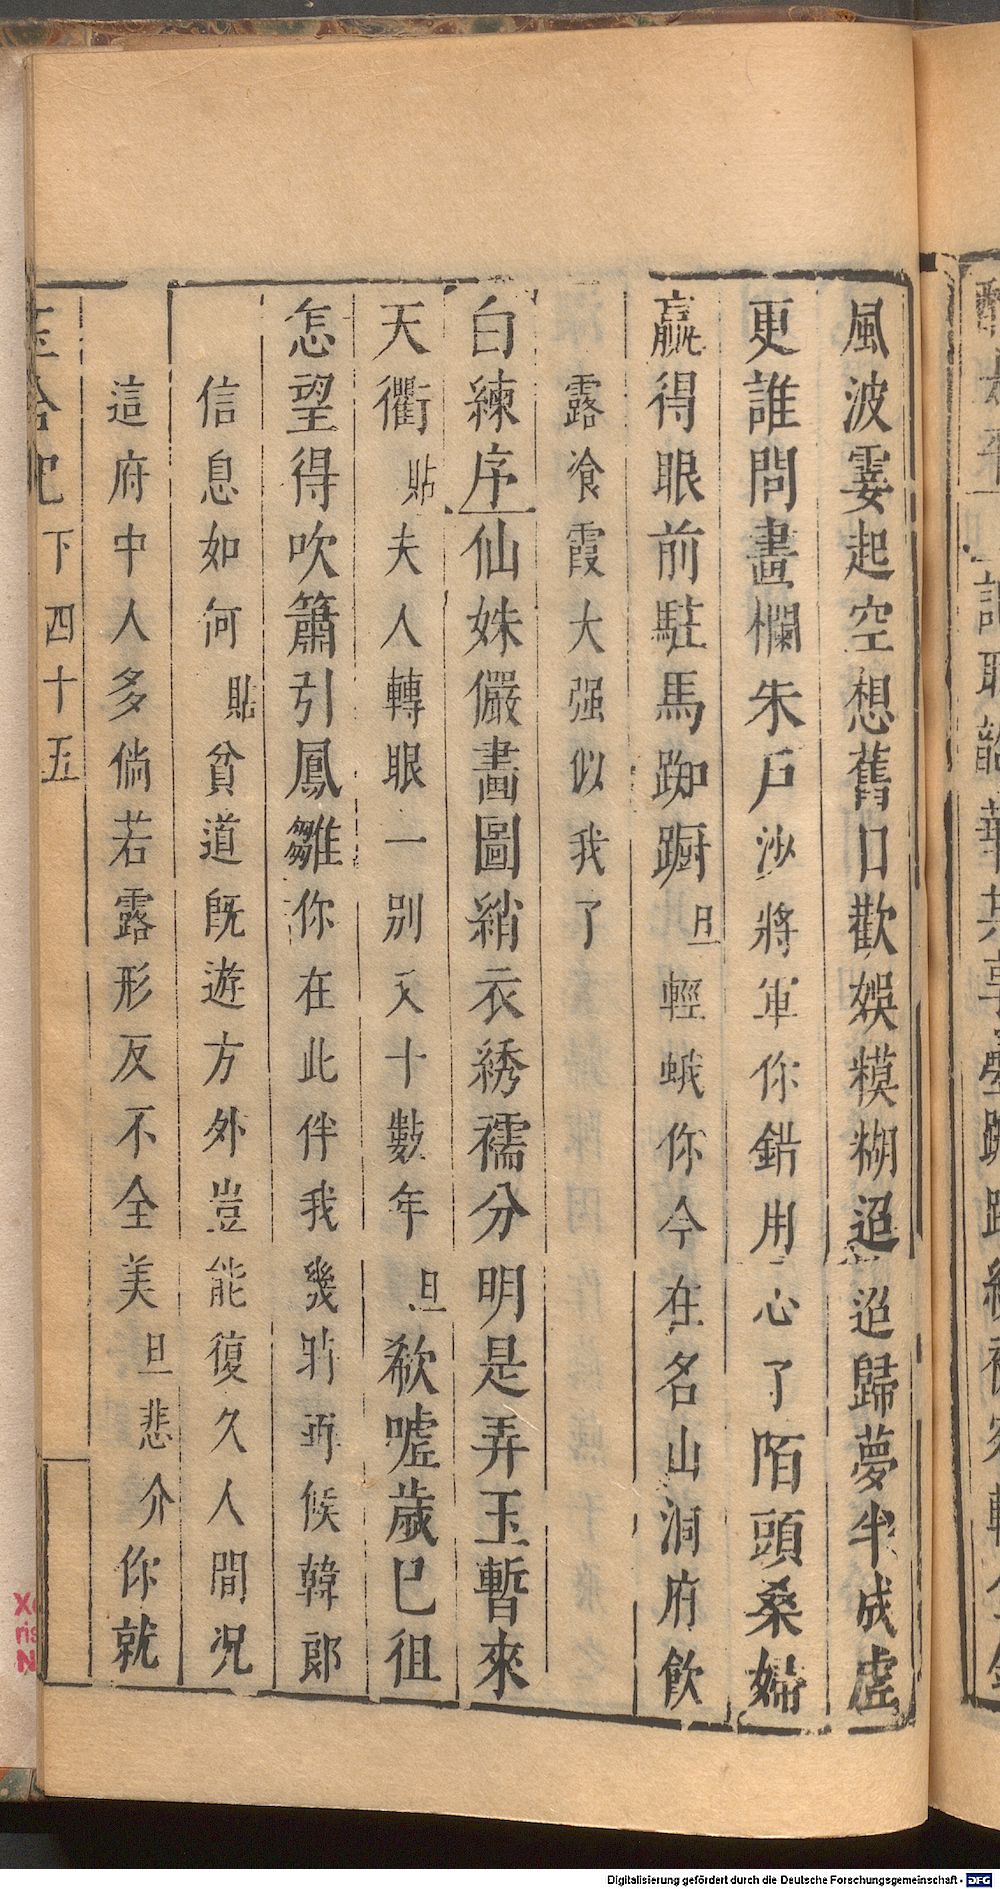 風波霎起空想舊日歡娛糢糊迢迢歸夢半成虛
更誰問畫欄朱戶沙將軍你錯用心了陌頭桑婦
羸得眼前駐馬踟蹰旦輕蛾你今在名山洞府飲
露飡霞大强似我了
白練序仙姝儼畫圖綃衣綉襦分明是弄玉暫來
天衢貼夫人轉眼一別又十數年旦欷噓歲已徂
怎望得吹簫引鳳雛你在此伴我幾時再候韓郎
信息如何貼貧道既遊方外豈能復久人間况
這府中人多倘若露形反不全美旦悲介你就
玉合記下四十五
Digitalisierung gefördert durch die Deutsche Forschungsgemeinschaft - DFG